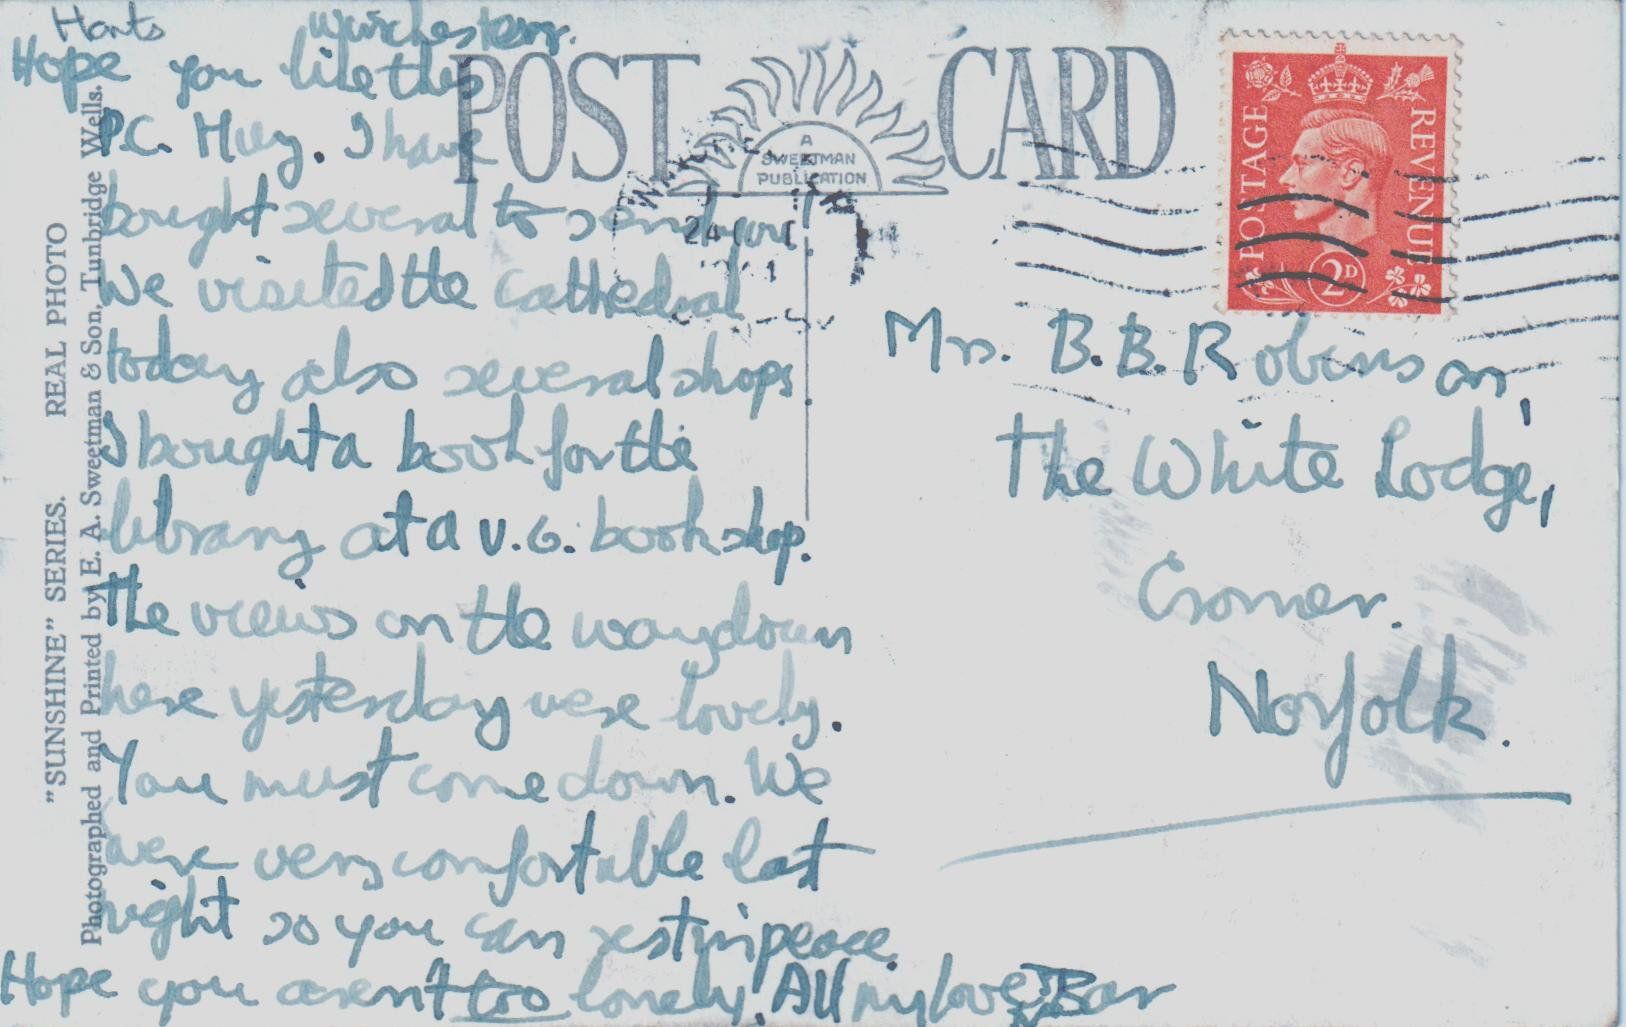 Hants Winchester.
Hope you like this
P.C. I have
bought several to send you!
We visited the Cathedral
today also several shops
I bought a book for the
library at a v.G. bookshop.
The views on the way down
here yesterday were lovely.
You must come down. We
were very comfortable last
night so you can rest in peace.
Hope you aren't too lonely! All my love Bar
POST CARD
A
SWEETMAN
PUBLICATION
POSTAGE
REVENUE
2D
Mrs. B.B. Robinson,
The White Lodge,
Cromer.
Norfolk.
"SUNSHINE" SERIES. REAL PHOTO
Photographed and Printed by E. A. Sweetman & Son, Tunbridge Wells.